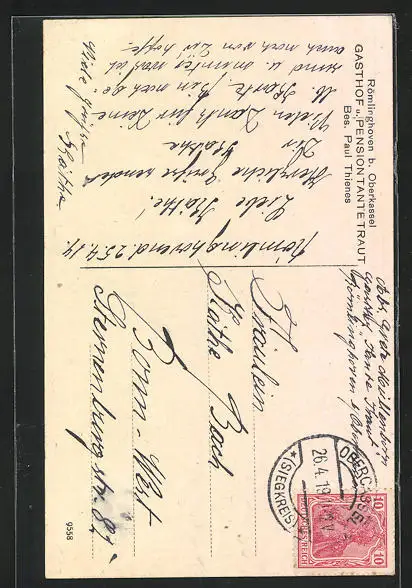 Römlinghoven b. Oberkassel
GASTHOF u. PENSION TANTE TRAUT
Bes. Paul Thienes
Römlinghoven d. 25.4.14
Liebe Käthe!
Herzliche Grüße sendet
Dir Käthe
Vielen Dank für Deine
Karte. Bin noch ge-
sund u. munter was ich
auch noch von Dir hoffe.
Viele Grüße
Käthe
Abs. Grete
Gasthof Tante Traut
Römlinghoven
Fräulein
Käthe Bach
Bonn-West
Sternenburgstr. 82
OBERCASSEL
26.4.19
* (SIEGKREIS)
10 10
DEUTSCHES REICH
9558